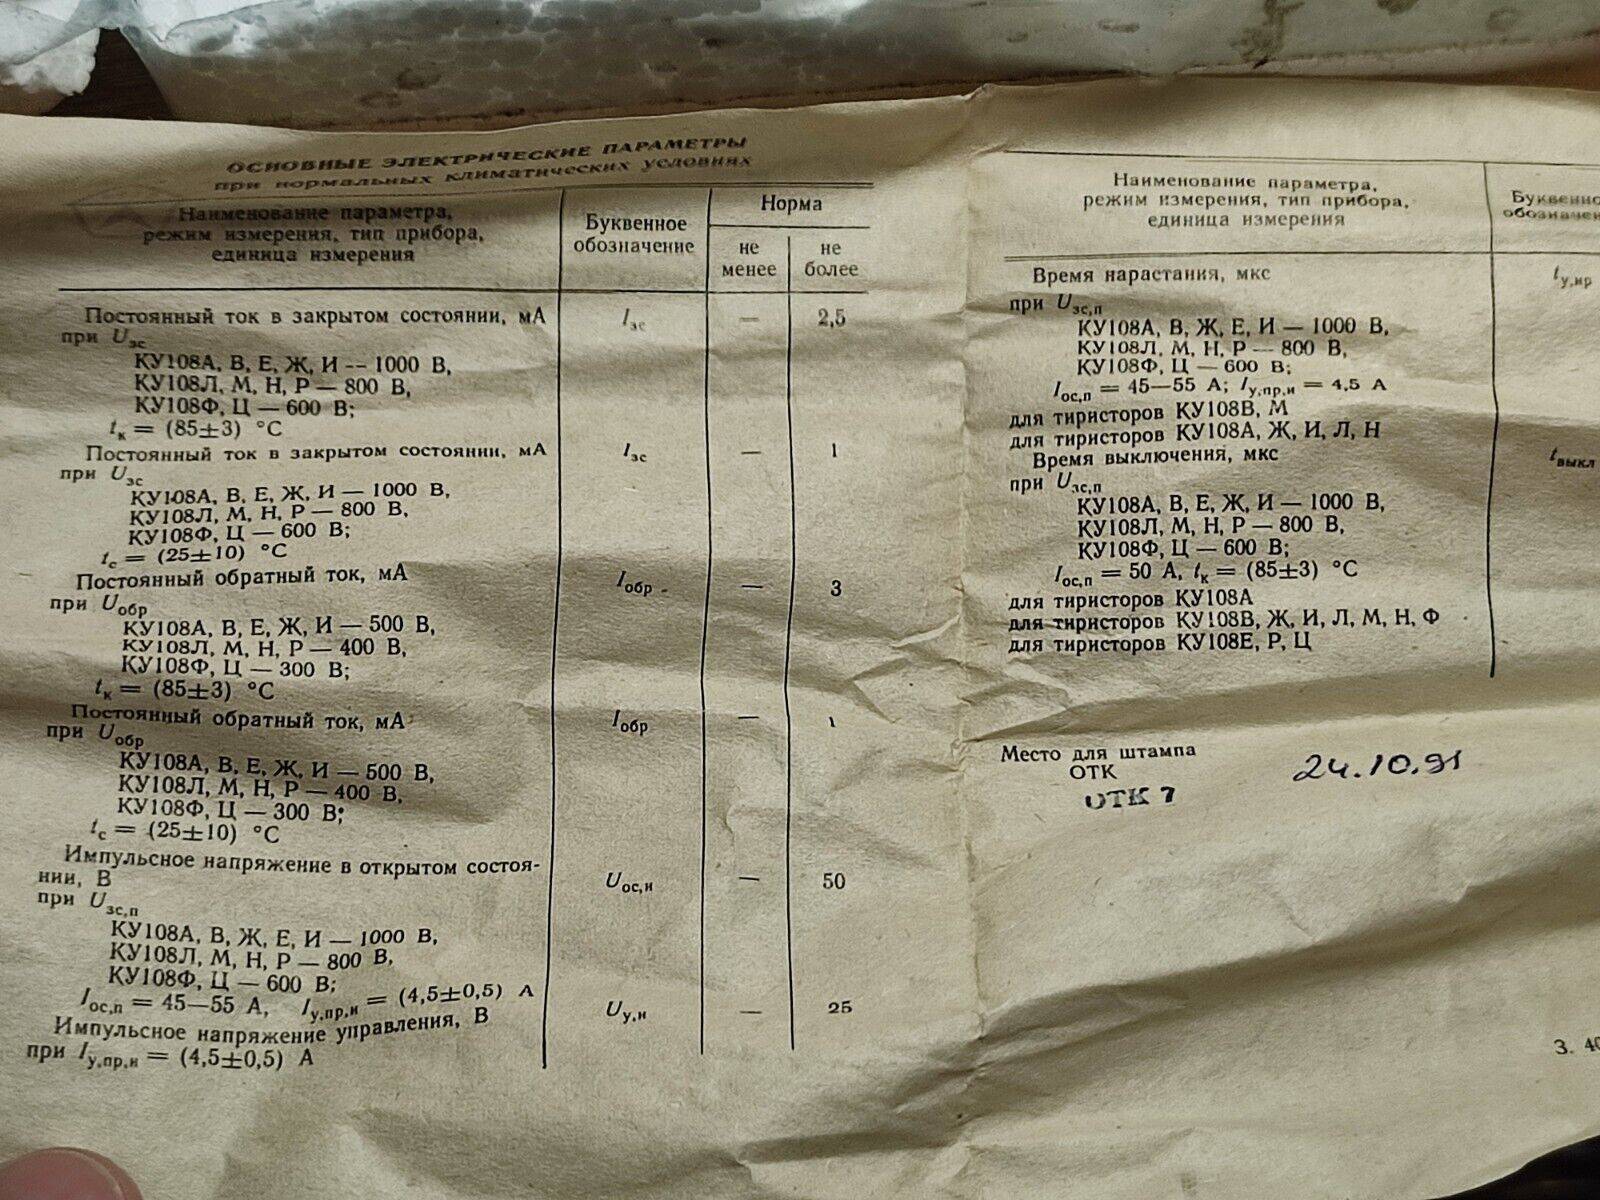 ОСНОВНЫЕ ЭЛЕКТРИЧЕСКИЕ ПАРАМЕТРЫ
при нормальных климатических условиях
Наименование параметра,
режим измерения, тип прибора,
единица измерения
Буквенное
обозначение
Норма
не
менее
не
более
Постоянный ток в закрытом состоянии, мА
Iзс
—
2,5
при Uзс
КУ108А, В, Е, Ж, И -- 1000 В,
КУ108Л, М, Н, Р — 800 В,
КУ108Ф, Ц — 600 В;
tк = (85±3) °С
Постоянный ток в закрытом состоянии, мА
Iзс
—
1
при Uзс
КУ108А, В, Е, Ж, И — 1000 В,
КУ108Л, М, Н, Р — 800 В,
КУ108Ф, Ц — 600 В;
tс = (25±10) °С
Постоянный обратный ток, мА
Iобр
—
3
при Uобр
КУ108А, В, Е, Ж, И — 500 В,
КУ108Л, М, Н, Р — 400 В,
КУ108Ф, Ц — 300 В;
tк = (85±3) °С
Постоянный обратный ток, мА
Iобр
—
1
при Uобр
КУ108А, В, Е, Ж, И — 500 В,
КУ108Л, М, Н, Р — 400 В,
КУ108Ф, Ц — 300 В;
tс = (25±10) °С
Импульсное напряжение в открытом состоя-
нии, В
Uос,и
—
50
при Uзс,п
КУ108А, В, Ж, Е, И — 1000 В,
КУ108Л, М, Н, Р — 800 В,
КУ108Ф, Ц — 600 В;
Iос,п = 45—55 А, Iу,пр,и = (4,5±0,5) А
Импульсное напряжение управления, В
Uу,и
—
25
при Iу,пр,и = (4,5±0,5) А
Наименование параметра,
режим измерения, тип прибора,
единица измерения
Время нарастания, мкс
tу,нр
при Uзс,п
КУ108А, В, Ж, Е, И — 1000 В,
КУ108Л, М, Н, Р — 800 В,
КУ108Ф, Ц — 600 В;
Iос,п = 45—55 А; Iу,пр,и = 4,5 А
для тиристоров КУ108В, М
для тиристоров КУ108А, Ж, И, Л, Н
Время выключения, мкс
tвыкл
при Uзс,п
КУ108А, В, Е, Ж, И — 1000 В,
КУ108Л, М, Н, Р — 800 В,
КУ108Ф, Ц — 600 В;
Iос,п = 50 А, tк = (85±3) °С
для тиристоров КУ108А
для тиристоров КУ108В, Ж, И, Л, М, Н, Ф
для тиристоров КУ108Е, Р, Ц
Место для штампа
ОТК
ОТК 7
24.10.91
З.